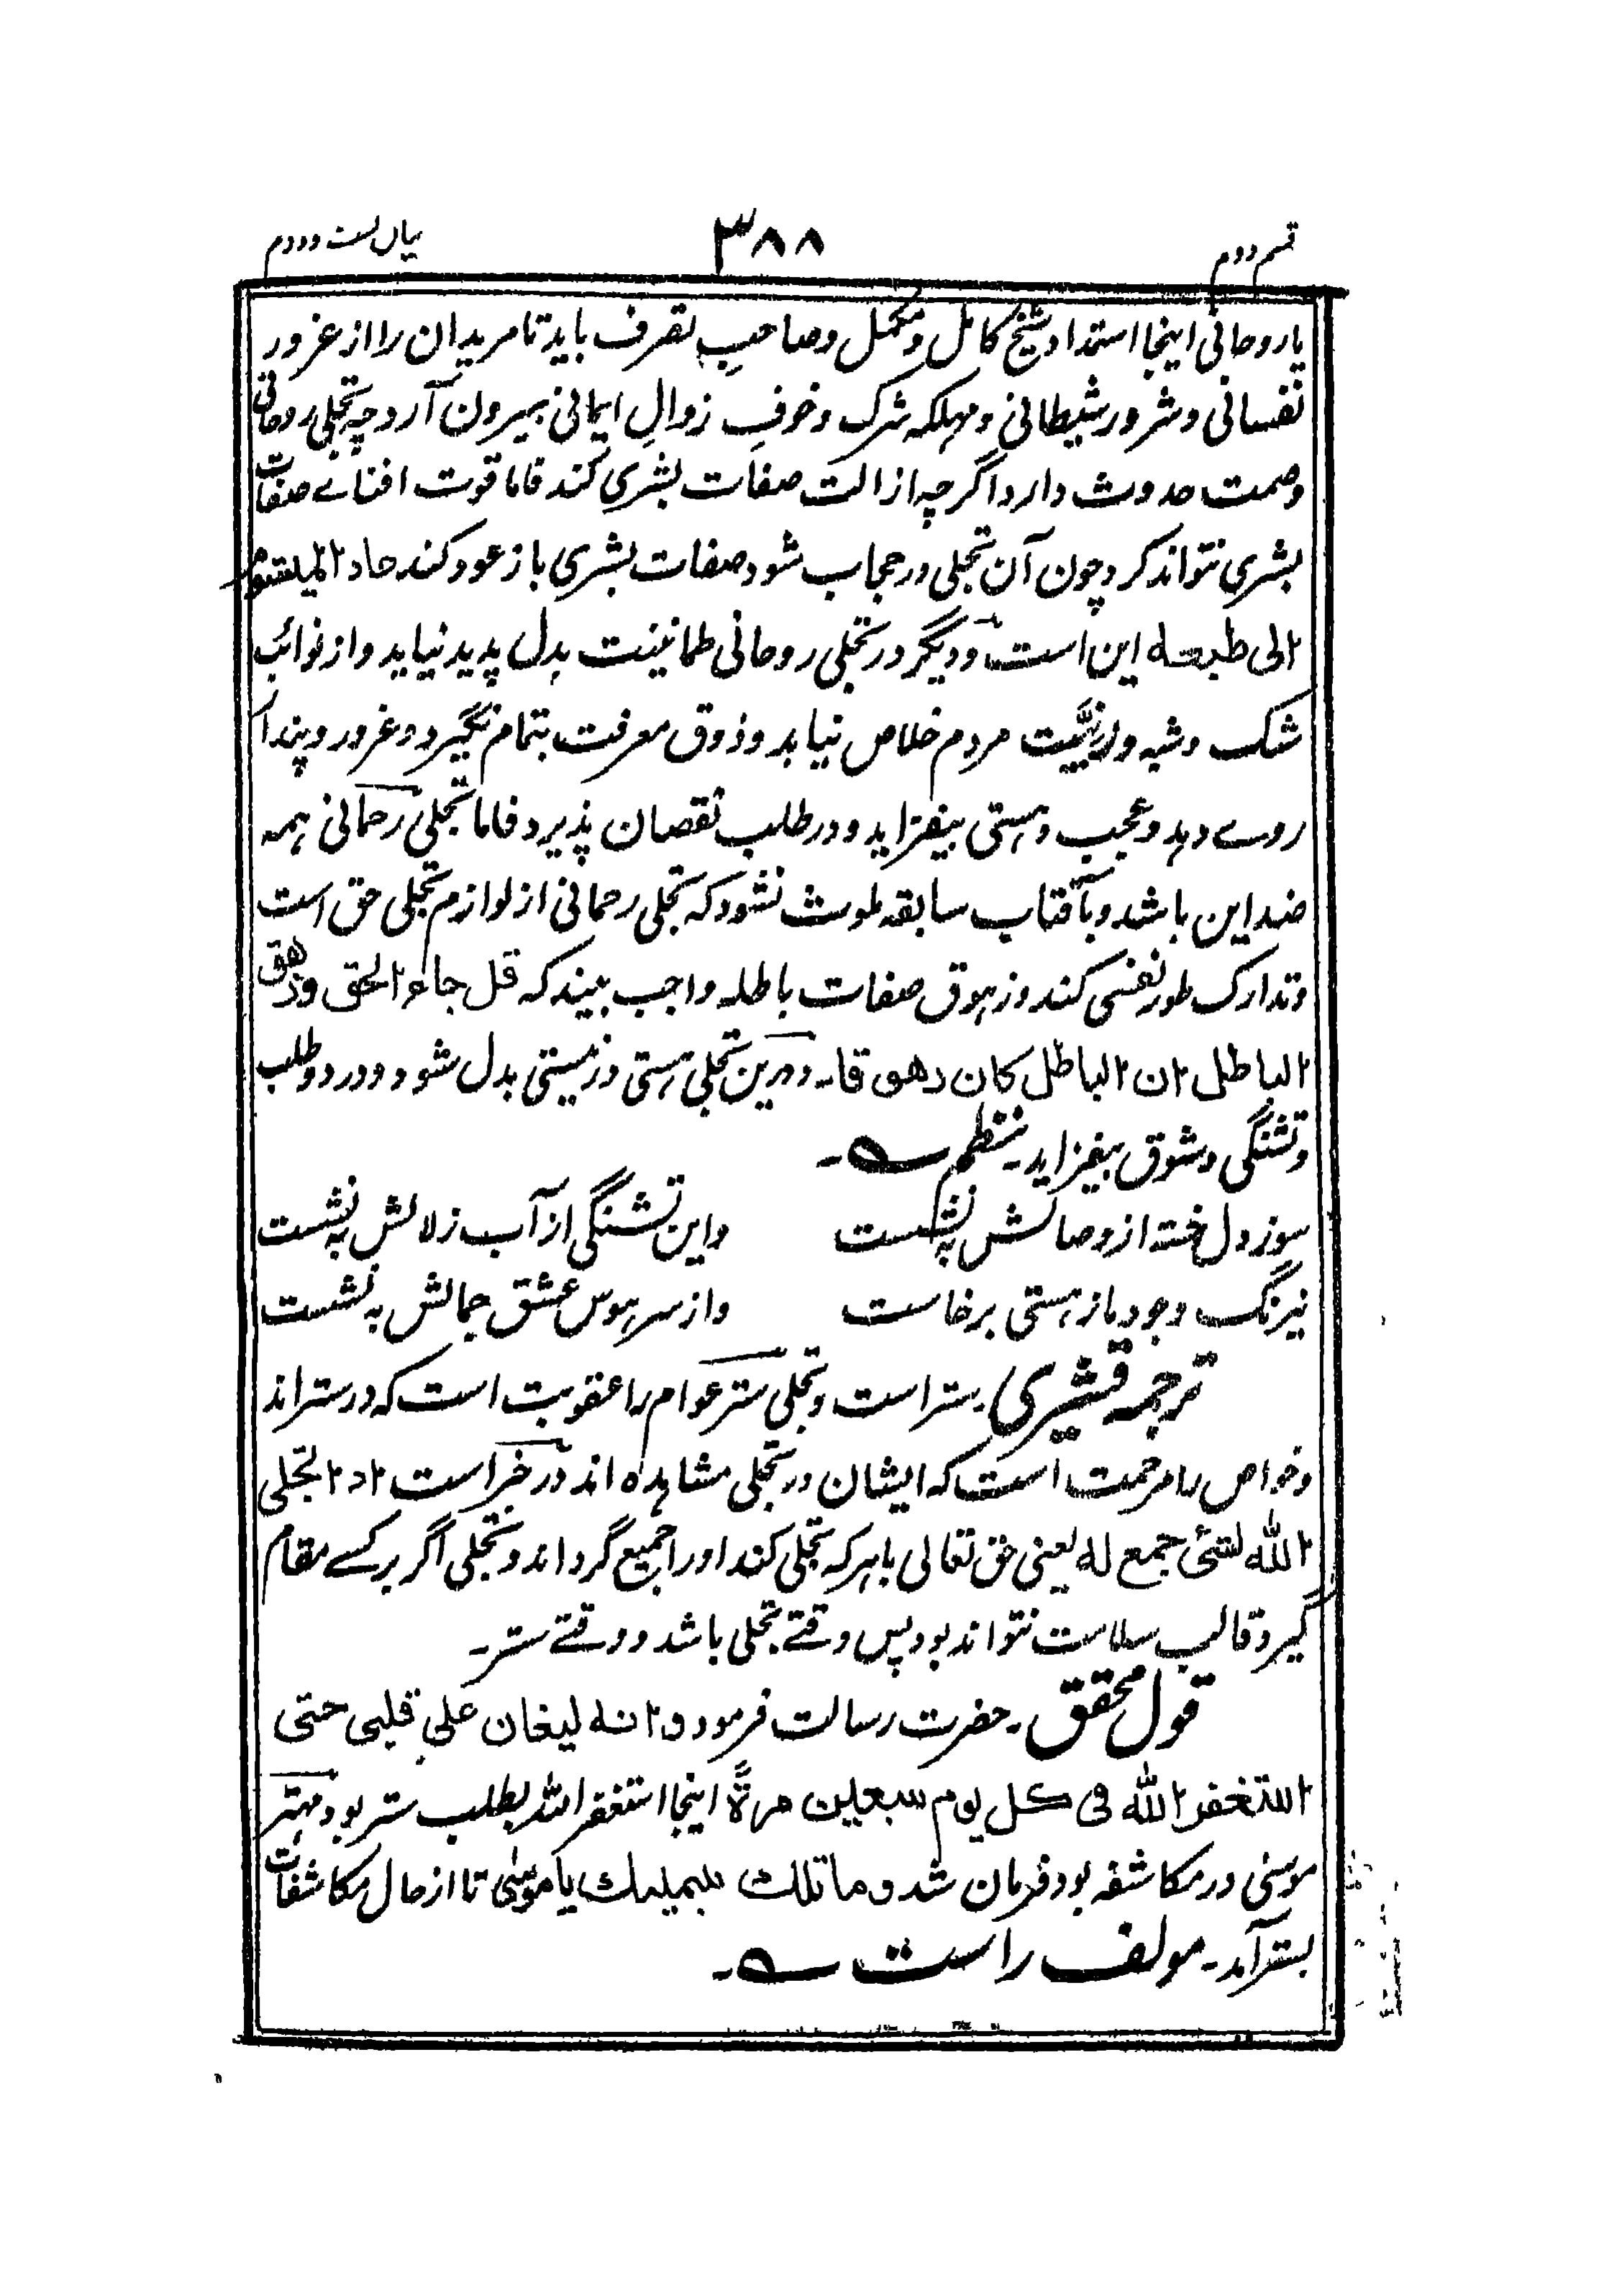 قسم دوم
۳۸۸
بیاں بست ودوم
یا روحانی اینجا استمداد شیخ کامل و مکمل و صاحبِ تصرف باید تا مریدان را از غرور
نفسانی و شرور شیطانی و مهلکه شرک و خوفِ زوالِ ایمانی بیرون آرد چه تجلی روحانی
وصمت حدوث دارد اگرچه ازالت صفات بشری کند فاما قوت افنائے صفات
بشری نتواند کرد چون آن تجلی در حجاب شود صفات بشری باز عود کند
الی طبعه این است و دیگر در تجلی روحانی طمانینت بدل پدید نیاید و از نوائب
شک و شبه و مردم خلاص نیابد و ذوق معرفت بتمام نگیرد و غرور و پندا
روے دهد و عجب و هستی بیفزاید و در طلب نقصان پذیرد فاما تجلی رحمانی همه
ضد این باشد و بآفتاب سابقه ملوث نشود که تجلی رحمانی از لوازم تجلی حق است
و تدارک طور نفسی کند و زهوق صفات باطله واجب بیند که قل جاء الحق وزهق
الباطل ان الباطل کان زهوقا۔ و درین تجلی هستی و نیستی بدل شود و درد و طلب
و تشنگی و شوق بیفزاید۔ نظم ؎
سوز دل خسته از وصالش نه نشست واین تشنگی از آب زلالش نه نشست
نیرنگ وجود باز هستی برخاست واز سر هوس عشق جمالش نه نشست
ترجمه قشیری۔ ستر است و تجلی ستر عوام را عقوبت است که در ستر اند
و خواص را مرحمت است که ایشان در تجلی مشاهده اند در خبر است اذا تجلی
الله لشئ جمع له یعنی حق تعالی باهر که تجلی کند او را جمیع گرداند و تجلی اگر بر کسے مقام
گیرد قالب سلامت نتواند بود پس وقتے تجلی باشد و وقتے ستر۔
قول محقق۔ حضرت رسالت فرمود و انه لیغان علی قلبی حتی
استغفر الله فی کل یوم سبعین مرةً اینجا استغفر الله بطلب ستر بود مهتر
موسیٰ در مکاشفه بود فرمان شد وما تلک بیمینک یا موسیٰ تا از حال مکاشفات
بستر آمد۔ مولف راست ؎